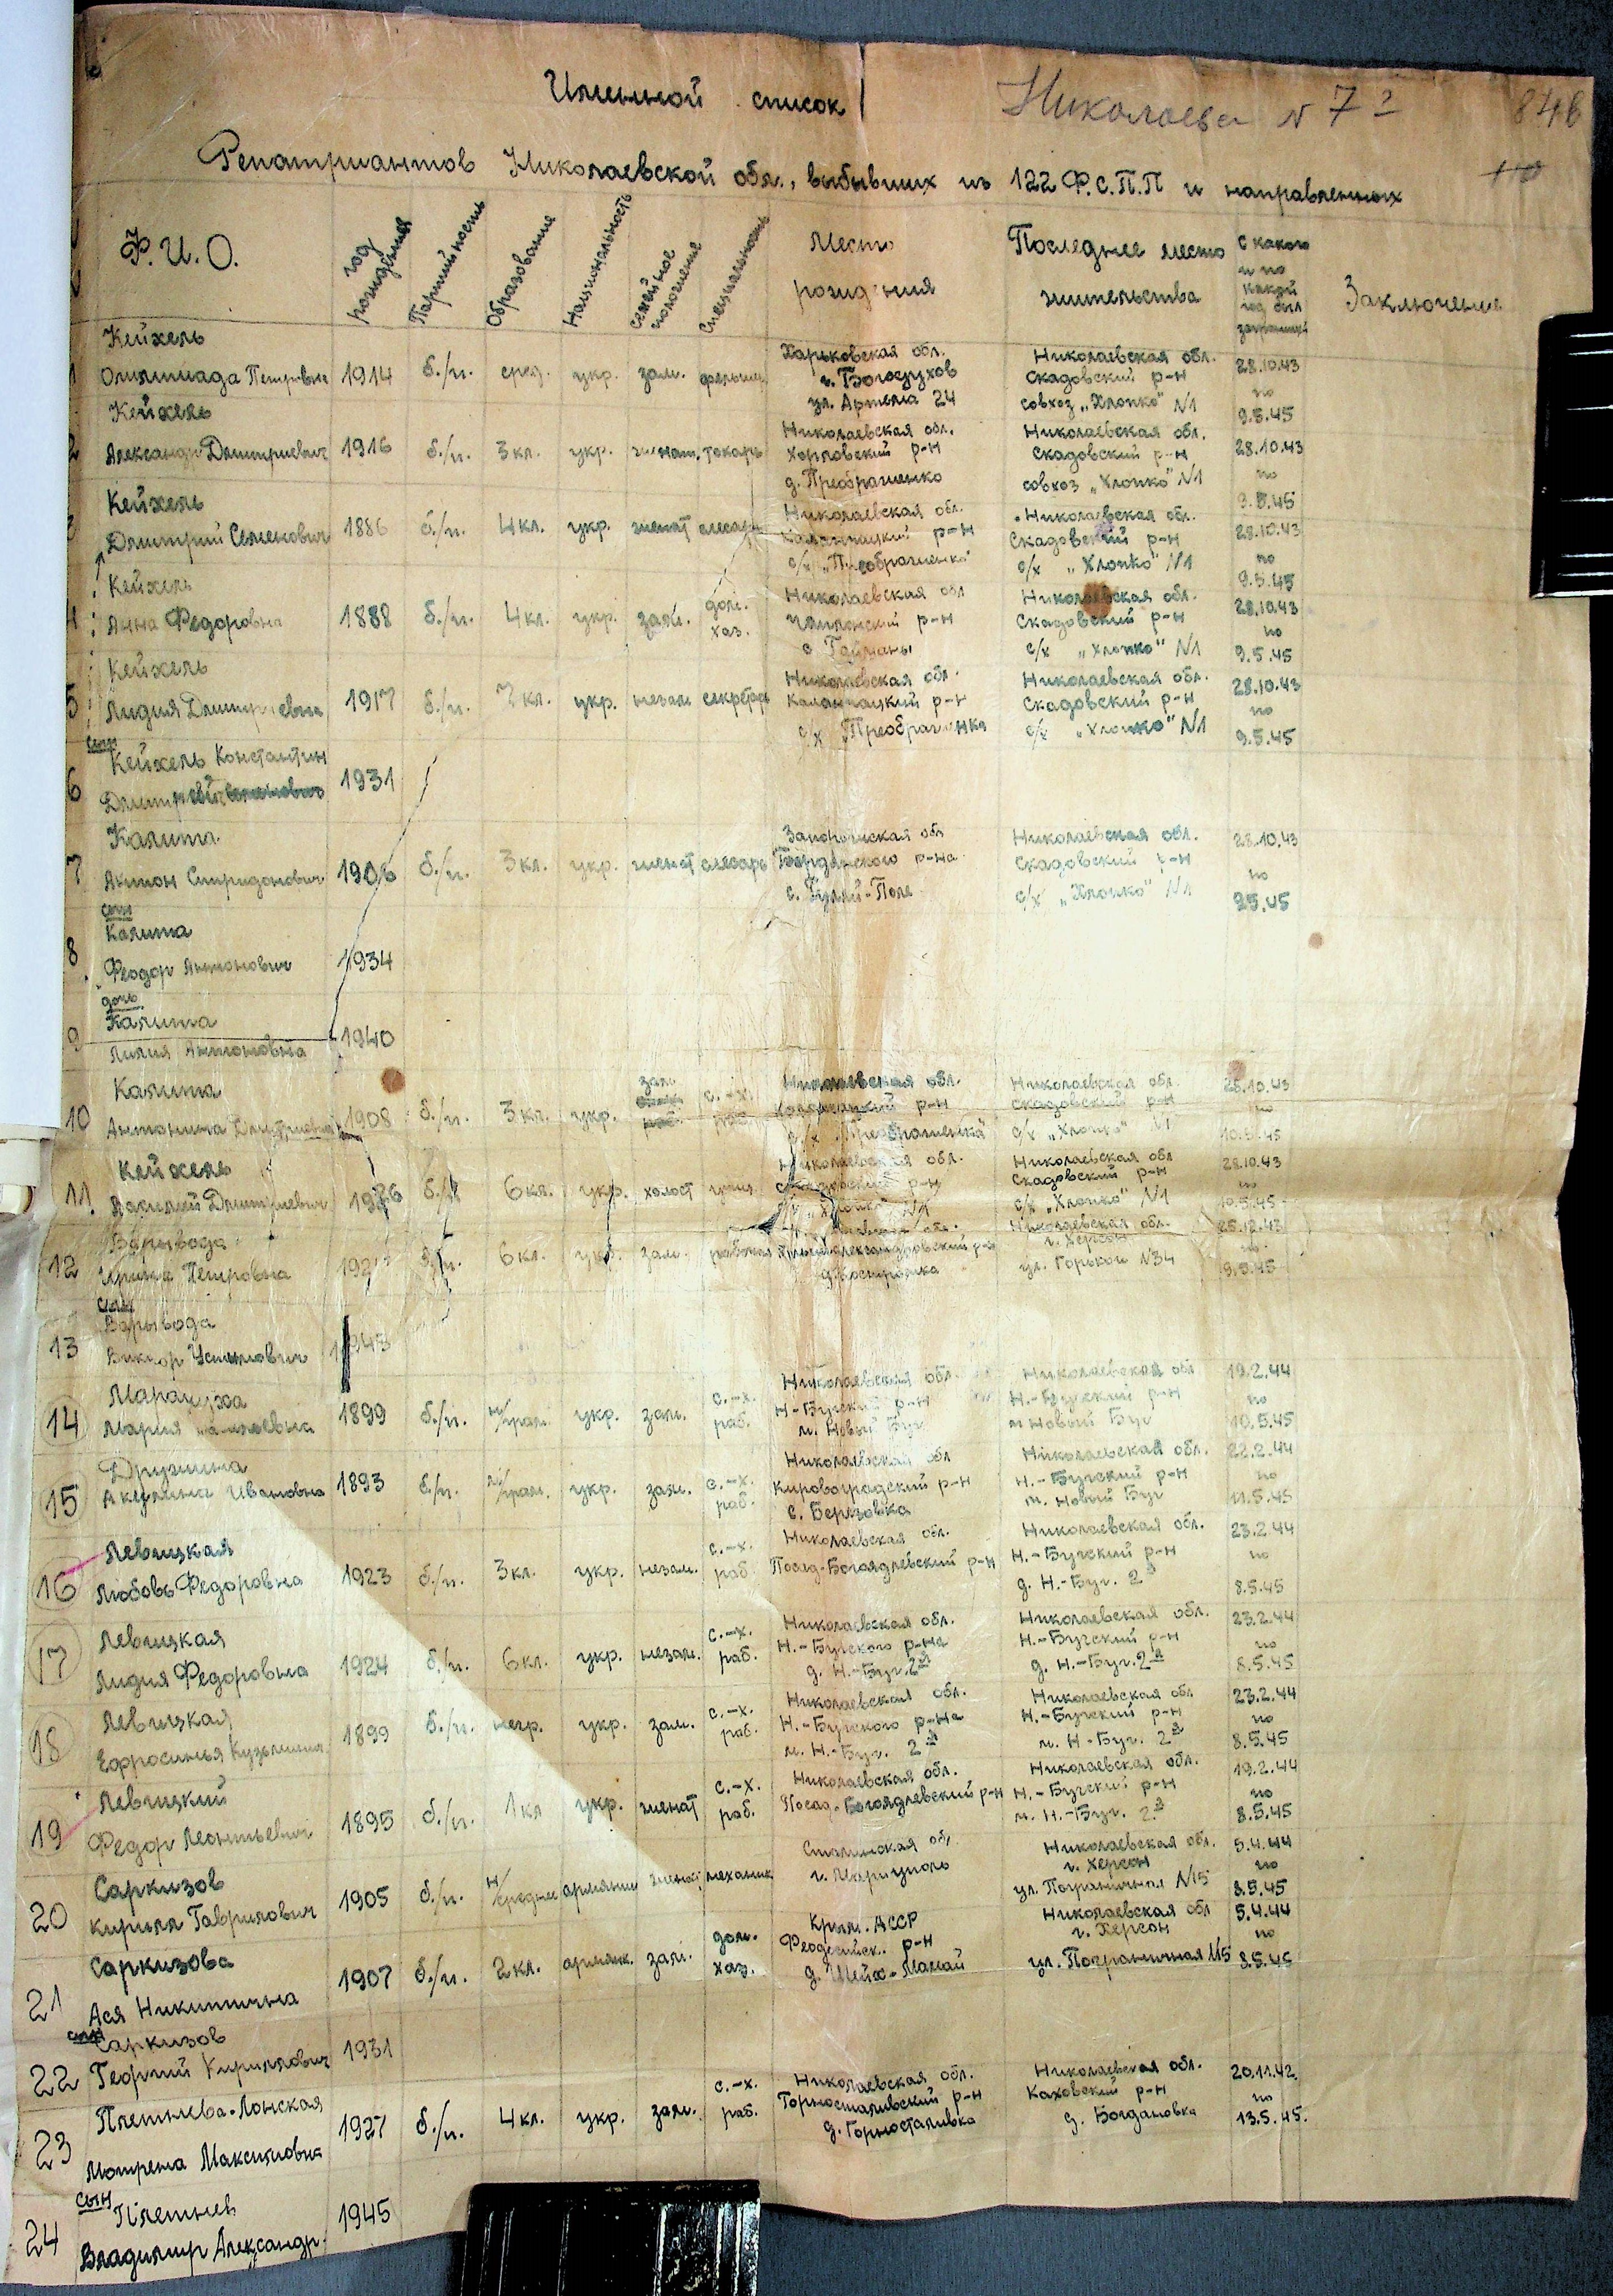 Именной список
Николаев N 7
846
Репатриантов Николаевской обл., выбывших из 122 Ф.С.П.П и направленных
Ф.И.О. год рождения Партийность Образование Национальность семейное положение специальность Место рождения Последнее место жительства с какого и по какой год был заграницей Заключение
1 Кейхель Олимпиада Петровна 1914 б./п. сред. укр. зам. Харьковская обл. г. Богодухов ул. Артема 24 Николаевская обл. Скадовский р-н совхоз „Хлопко" N1 28.10.43 по 9.5.45
2 Кейхель Александр Дмитриевич 1916 б./п. 3 кл. укр. женат. токарь Николаевская обл. Хорловский р-н д. Преображенко Николаевская обл. Скадовский р-н совхоз „Хлопко" N1 28.10.43 по 9.5.45
3 Кейхель Дмитрий Семенович 1886 б./п. 4 кл. укр. женат слесарь Николаевская обл. Каланчацкий р-н с/х „Преображенко" Николаевская обл. Скадовский р-н с/х „Хлопко" N1 28.10.43 по 9.5.45
4 Кейхель Анна Федоровна 1888 б./п. 4 кл. укр. зам. дом. хоз. Николаевская обл р-н с Николаевская обл. Скадовский р-н с/х „Хлопко" N1 28.10.43 по 9.5.45
5 Кейхель Лидия Дмитриевна 1917 б./п. 7 кл. укр. незам секретарь Николаевская обл. Каланчацкий р-н с/х Преображенка Николаевская обл. Скадовский р-н с/х „Хлопко" N1 28.10.43 по 9.5.45
6 сын Кейхель Константин 1931
7 Калита Антон Спиридонович 1906 б./п. 3 кл. укр. женат слесарь Запорожская обл Бердянского р-на с. Гуляй-Поле Николаевская обл. Скадовский р-н с/х „Хлопко" N1 28.10.43 по 9.5.45
8 сын Калита Феодор Антонович 1934
9 дочь Калита Лилия Антоновна 1940
10 Калита Антонина Дмитриевна 1908 б./п. 3 кл. укр. зам с.-х. раб. Николаевская обл. Каланчацкий р-н с/х „Преображенка" Николаевская обл. Скадовский р-н с/х „Хлопко" N1 28.10.43 по 10.5.45
11. Кейхель Василий Дмитриевич 1926 б./п 6 кл. укр. холост учил. Николаевская обл. Скадовский р-н с/х „Хлопко" N1 Николаевская обл Скадовский р-н с/х „Хлопко" N1 28.10.43 по 10.5.45
12 Варывода Ирина Петровна б./п. 6 кл. укр. зам. обл. Николаевская обл. г. Херсон ул. Горького N34 25.12.43 по 9.5.45
13 сын Варывода Виктор 1943
14 Мария 1899 б./п. н/грам. укр. зам. с.-х. раб. Николаевская обл. Н-Бугский р-н м. Новый Буг Николаевская обл Н.-Бугский р-н м Новый Буг 19.2.44 по 10.5.45
15 Дружина Акулина Ивановна 1893 б./п. м/грам. укр. зам. с.-х. раб. Николаевская обл Кировоградский р-н с. Березовка Николаевская обл. Н.-Бугский р-н м. Новый Буг 22.2.44 по 11.5.45
16 Левицкая Любовь Федоровна 1923 б./п. 3 кл. укр. незам. с.-х. раб. Николаевская обл. Посад-Богоядлевский р-н Николаевская обл. Н.-Бугский р-н д. Н.-Буг. 2й 23.2.44 по 8.5.45
17 Левицкая Лидия Федоровна 1924 б./п. 6 кл. укр. незам. с.-х. раб. Николаевская обл. Н.-Бугского р-на д. Н.-Буг. 2й Николаевская обл. Н.-Бугский р-н д. Н.-Буг. 2й 23.2.44 по 8.5.45
18 Левицкая Ефросинья Кузьминия 1899 б./п. негр. укр. зам. с.-х. раб. Николаевская обл. Н.-Бугского р-на м. Н.-Буг. 2й Николаевская обл Н.-Бугский р-н м. Н-Буг. 2й 23.2.44 по 8.5.45
19 Левицкий Федор Леонтьевич 1895 б./п. 1 кл укр. женат с.-х. раб. Николаевская обл. Посад-Богоядлевский р-н Николаевская обл. Н.-Бугский р-н м. Н.-Буг. 2й 19.2.44 по 8.5.45
20 Саркизов Кирилл Гаврилович 1905 б./п. н/среднее армянин женат механик Сталинская обл г. Мариуполь Николаевская обл. г. Херсон ул. Пограничная N15 5.4.44 по 8.5.45
21 Саркизова Ася Никитична 1907 б./п. 2 кл. армянк. зам. дом. хоз. Крым. АССР Феодосийск. р-н д. Шейх-Мамай Николаевская обл г. Херсон ул. Пограничная N15 5.4.44 по 8.5.45
22 сын Саркизов Георгий Кириллович 1931
23 Плетнева-Лонская Мотрена Максимовна 1927 б./п. 4 кл. укр. зам. с.-х. раб. Николаевская обл. Горностаивский р-н д. Горностаивка Николаевская обл. Каховский р-н д. Богдановка 20.11.42. по 13.5.45.
24 сын Плетнев Владимир Александр. 1945